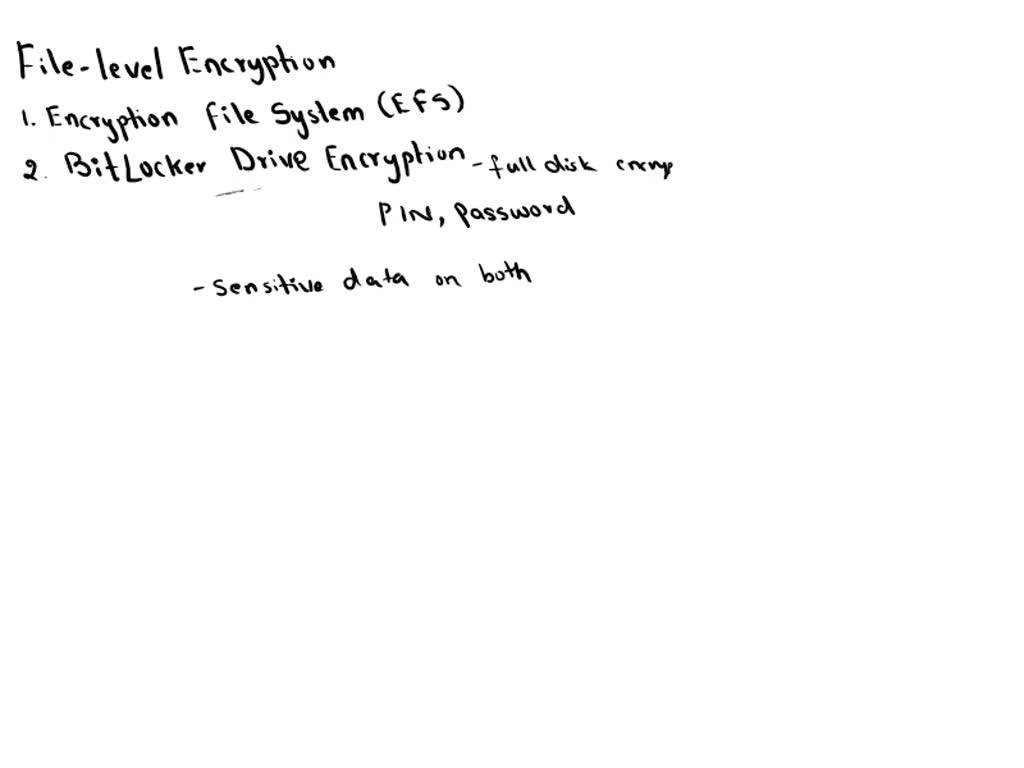 File-level Encryption
1. Encryption file System (EFS)
2. BitLocker Drive Encryption - full disk encryp
PIN, password
- Sensitive data on both